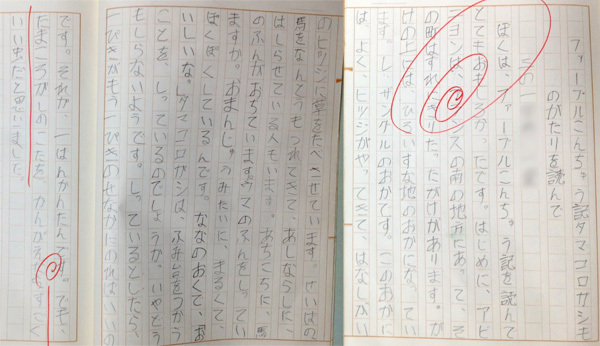 ファーブルこんちゅう記タマコロガシも
のがたりを読んで
ぼくは、ファーブルこんちゅう記を読んで
とてもおもしろかったです。はじめに、アビ
ニヨンは、フランスの南の地方にあって、そ
の町はずれに たかがけがあります。が
けの上には、ひろいすな地のおかになってい
ます。レ・ザングルのおかです。このおかに
は、よく、ヒツジがやってきて、はなしがい
のヒツジに草をたべさせています。けいばの
馬をなんとうもつれてきて、あしならしに、
はしらせている人もいます。あちこちに、馬
のふんがおちています。ウマのふんをしってい
ますか。おまんじゅうみたいに、まるくて、
ほくほくしているんです。ななのおくて、お
いしいな。タマコロガシは、ふみ台をつかう
ことを、しっているのでしょうか。いや、どう
もしらないようです。しっているとしたら、
一ぴきがもう一ぴきのせなかにのればいい
です。それが、一ばんかんたんです。でも、
たまころがしのことを、かんがえるとすごく
いい虫だと思いました。